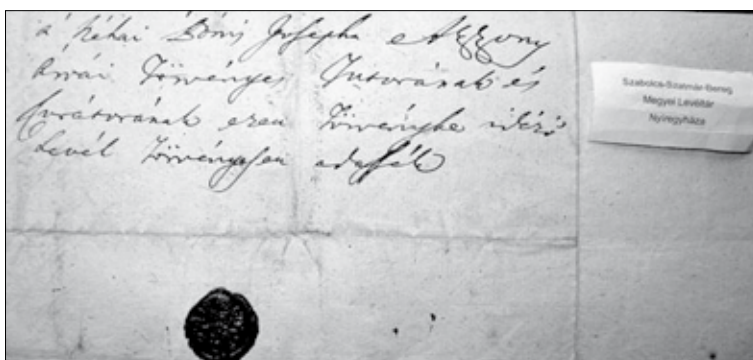 a Néhai Bónis Josepha Aszszony
Árvái Törvényes Tutorának és
Curátorának ezen Törvénybe idéző
Levél Törvényesen adassék
Szabolcs-Szatmár-Bereg
Megyei Levéltár
Nyíregyháza